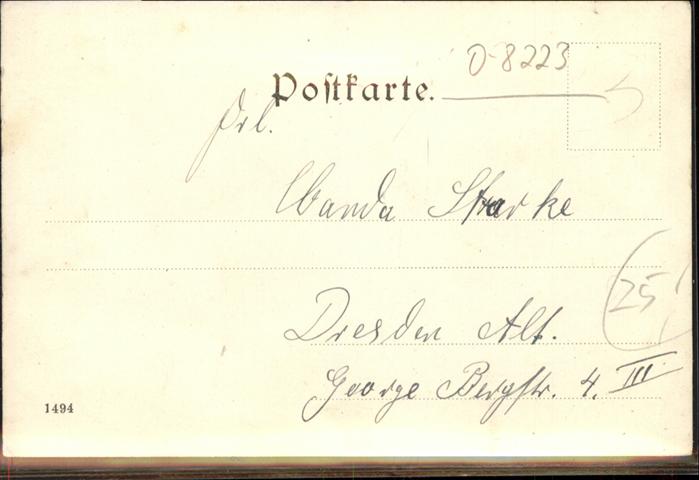 D-8223
Postkarte.
Frl.
Wanda Starke
(25)
Dresden Alt.
George Bergstr. 4. III
1494